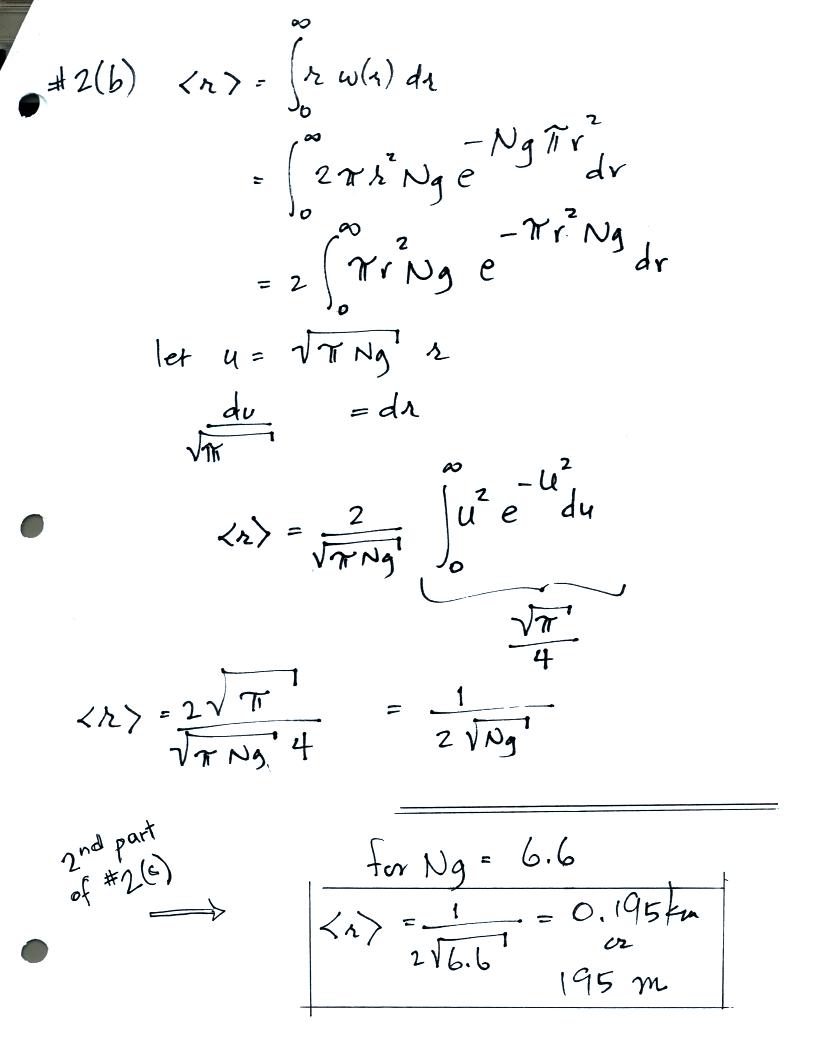 #2(b) <r> = ∫₀^∞ r w(r) dr
= ∫₀^∞ 2πr² Ng e^(-Ng πr²) dr
= 2 ∫₀^∞ πr² Ng e^(-πr² Ng) dr
let u = √(π Ng) r
du/√π = dr
<r> = 2/√(π Ng) ∫₀^∞ u² e^(-u²) du
√π/4
<r> = 2√π/(√(π Ng) 4) = 1/(2√Ng)
2nd part
of #2(b)
⟹
for Ng = 6.6
<r> = 1/(2√6.6) = 0.195 km
or
195 m